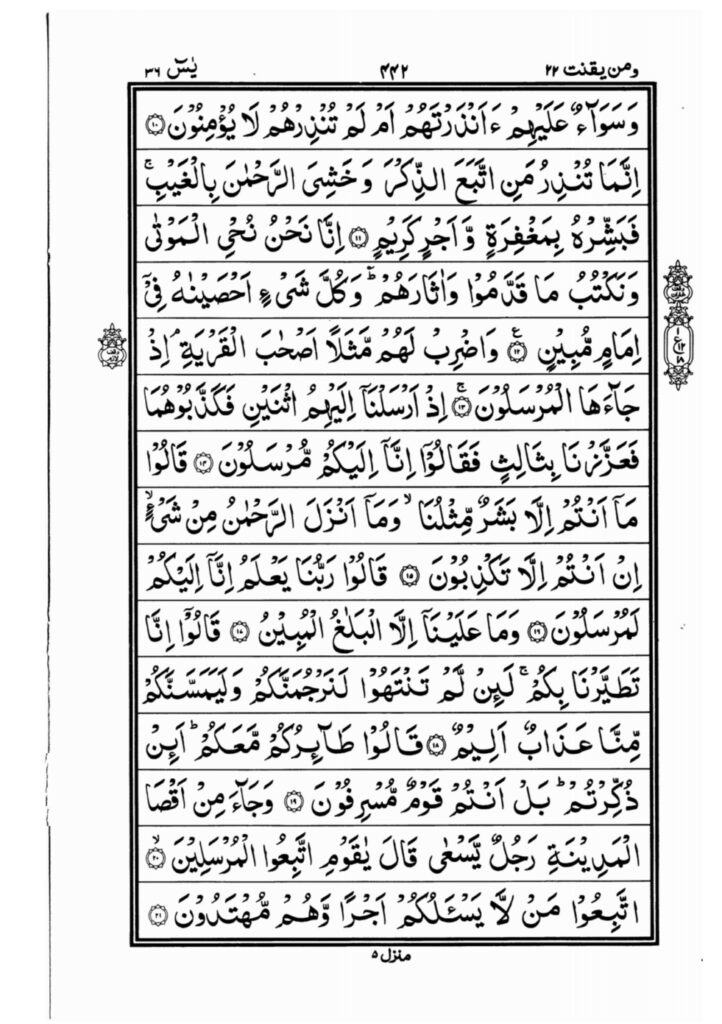 ومن يقنت ٢٢ ٤٤٢ يٰسٓ ٣٦
وَسَوَآءٌ عَلَيْهِمْ ءَاَنْذَرْتَهُمْ اَمْ لَمْ تُنْذِرْهُمْ لَا يُؤْمِنُوْنَ ﴿١٠﴾
اِنَّمَا تُنْذِرُ مَنِ اتَّبَعَ الذِّكْرَ وَخَشِىَ الرَّحْمٰنَ بِالْغَيْبِ ۚ
فَبَشِّرْهُ بِمَغْفِرَةٍ وَّاَجْرٍ كَرِيْمٍ ﴿١١﴾ اِنَّا نَحْنُ نُحْىِ الْمَوْتٰى
وَنَكْتُبُ مَا قَدَّمُوْا وَاٰثَارَهُمْ ؕ وَكُلَّ شَىْءٍ اَحْصَيْنٰهُ فِىْۤ
اِمَامٍ مُّبِيْنٍ ﴿١٢﴾ ع وَاضْرِبْ لَهُمْ مَّثَلًا اَصْحٰبَ الْقَرْيَةِ ۘ اِذْ
جَآءَهَا الْمُرْسَلُوْنَ ﴿١٣﴾ ۚ اِذْ اَرْسَلْنَاۤ اِلَيْهِمُ اثْنَيْنِ فَكَذَّبُوْهُمَا
فَعَزَّزْنَا بِثَالِثٍ فَقَالُوْۤا اِنَّاۤ اِلَيْكُمْ مُّرْسَلُوْنَ ﴿١٤﴾ قَالُوْا
مَاۤ اَنْتُمْ اِلَّا بَشَرٌ مِّثْلُنَا ۙ وَمَاۤ اَنْزَلَ الرَّحْمٰنُ مِنْ شَىْءٍ ۙ
اِنْ اَنْتُمْ اِلَّا تَكْذِبُوْنَ ﴿١٥﴾ قَالُوْا رَبُّنَا يَعْلَمُ اِنَّاۤ اِلَيْكُمْ
لَمُرْسَلُوْنَ ﴿١٦﴾ وَمَا عَلَيْنَاۤ اِلَّا الْبَلٰغُ الْمُبِيْنُ ﴿١٧﴾ قَالُوْۤا اِنَّا
تَطَيَّرْنَا بِكُمْ ۚ لَئِنْ لَّمْ تَنْتَهُوْا لَنَرْجُمَنَّكُمْ وَلَيَمَسَّنَّكُمْ
مِّنَّا عَذَابٌ اَلِيْمٌ ﴿١٨﴾ قَالُوْا طَآئِرُكُمْ مَّعَكُمْ ؕ اَئِنْ
ذُكِّرْتُمْ ؕ بَلْ اَنْتُمْ قَوْمٌ مُّسْرِفُوْنَ ﴿١٩﴾ وَجَآءَ مِنْ اَقْصَا
الْمَدِيْنَةِ رَجُلٌ يَّسْعٰى قَالَ يٰقَوْمِ اتَّبِعُوا الْمُرْسَلِيْنَ ﴿٢٠﴾ ۙ
اتَّبِعُوْا مَنْ لَّا يَسْئَلُكُمْ اَجْرًا وَّهُمْ مُّهْتَدُوْنَ ﴿٢١﴾
منزل ٥